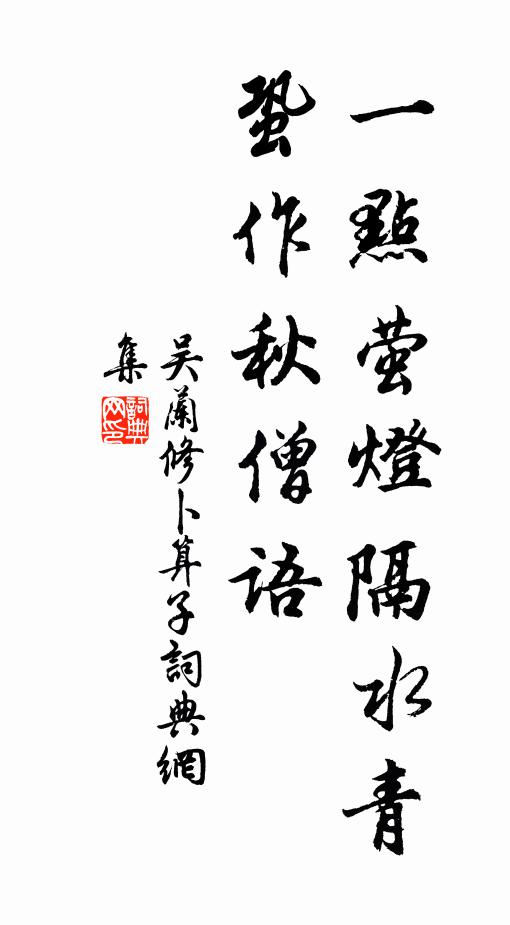 一點萤燈隔水青
蛩作秋僧語
吴蘭修卜算子詞典網
集
詞典
网印